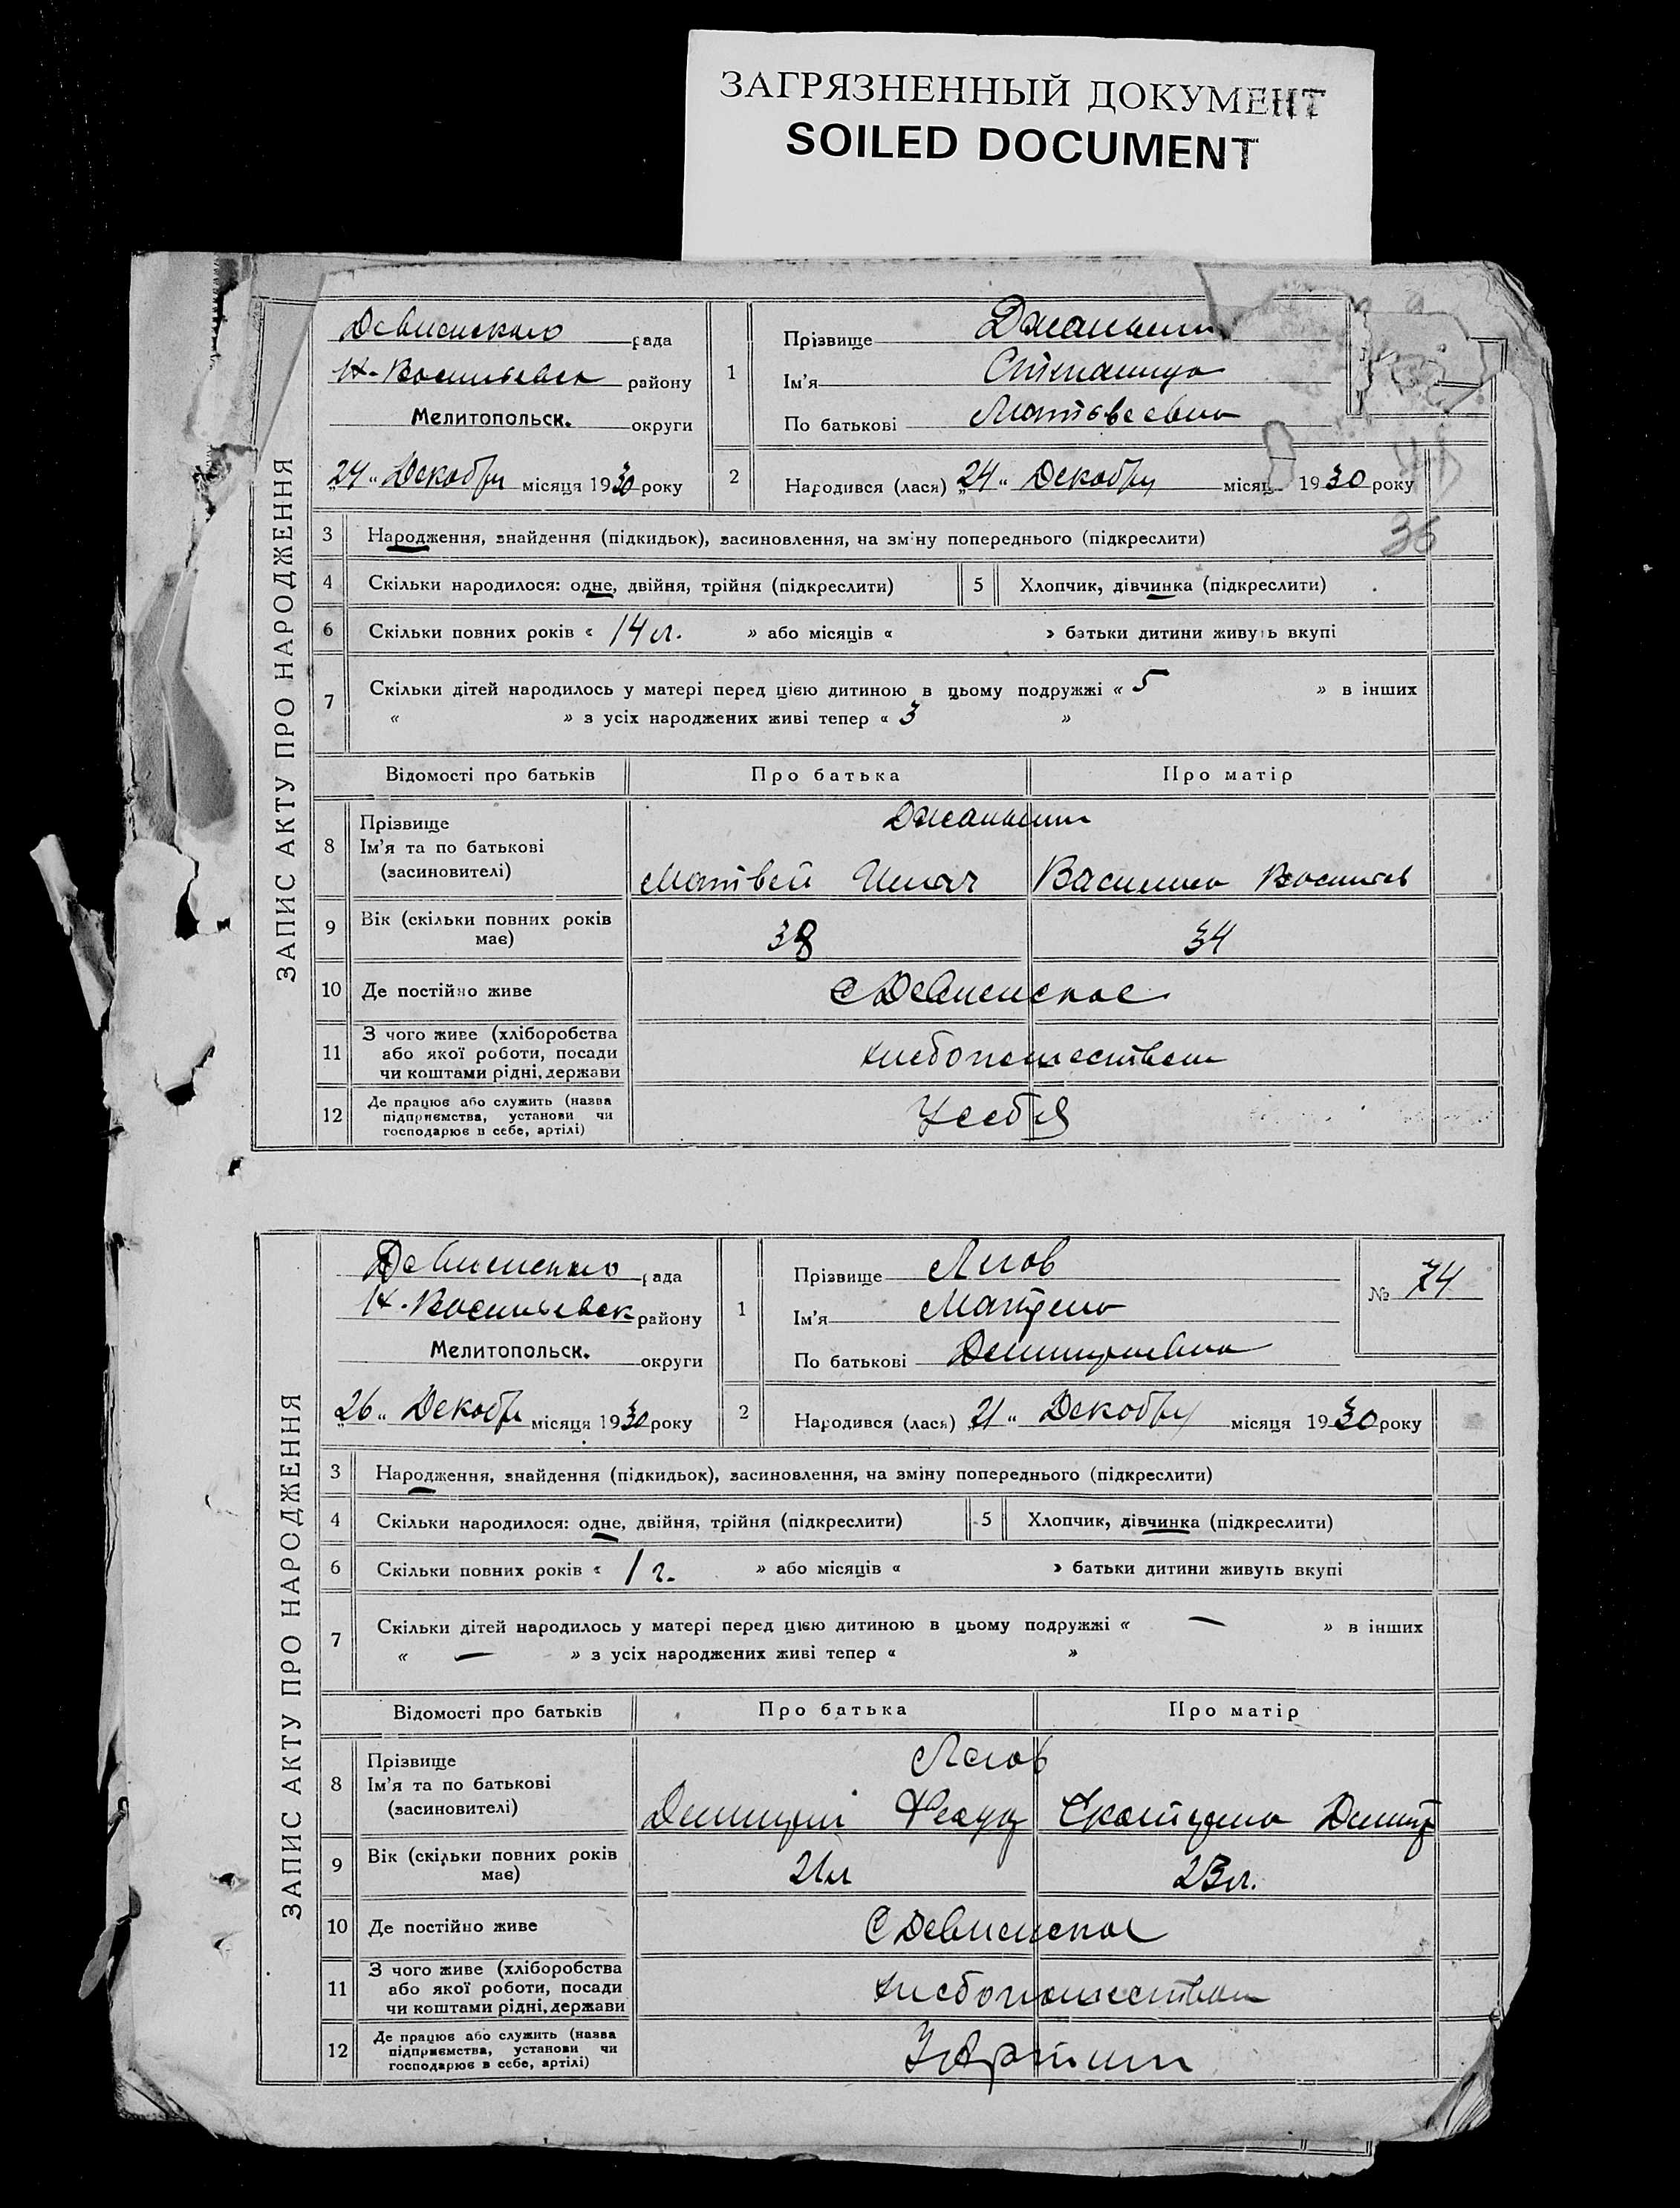 ЗАГРЯЗНЕННЫЙ ДОКУМЕНТ
SOILED DOCUMENT
ЗАПИС АКТУ ПРО НАРОДЖЕННЯ
рада
Н-Васильевск району
Мелитопольск. округи
„24“ Декабря місяця 1930 року
1
Прізвище
Ім'я
По батькові Матвеевна
2 Народився (лася) „24“ Декабря місяця 1930 року
36
3 Народження, знайдення (підкидьок), засиновлення, на зміну попереднього (підкреслити)
4 Скільки народилося: одне, двійня, трійня (підкреслити) 5 Хлопчик, дівчинка (підкреслити)
6 Скільки повних років « 14 л. » або місяців « » батьки дитини живуть вкупі
7 Скільки дітей народилось у матері перед цією дитиною в цьому подружжі « 5 » в інших
« » з усіх народжених живі тепер « 3 »
Відомості про батьків Про батька Про матір
8 Прізвище
Ім'я та по батькові
(засиновителі) Матвей
9 Вік (скільки повних років має) 38 34
10 Де постійно живе
11 З чого живе (хліборобства
або якої роботи, посади
чи коштами рідні, держави хлебопашеством
12 Де працює або служить (назва
підприємства, установи чи
господарює в себе, артілі) У себя
ЗАПИС АКТУ ПРО НАРОДЖЕННЯ
рада
Н-Васильевск району
Мелитопольск. округи
„26“ Декабря місяця 1930 року
1
Прізвище
Ім'я Матрена
По батькові Димитриевна
№ 74
2 Народився (лася) „21“ Декабря місяця 1930 року
3 Народження, знайдення (підкидьок), засиновлення, на зміну попереднього (підкреслити)
4 Скільки народилося: одне, двійня, трійня (підкреслити) 5 Хлопчик, дівчинка (підкреслити)
6 Скільки повних років « 1 г. » або місяців « » батьки дитини живуть вкупі
7 Скільки дітей народилось у матері перед цією дитиною в цьому подружжі « — » в інших
« — » з усіх народжених живі тепер « »
Відомості про батьків Про батька Про матір
8 Прізвище
Ім'я та по батькові
(засиновителі) Димитрий
9 Вік (скільки повних років має) 21 л 23 л.
10 Де постійно живе
11 З чого живе (хліборобства
або якої роботи, посади
чи коштами рідні, держави хлебопашеством
12 Де працює або служить (назва
підприємства, установи чи
господарює в себе, артілі) У Артили